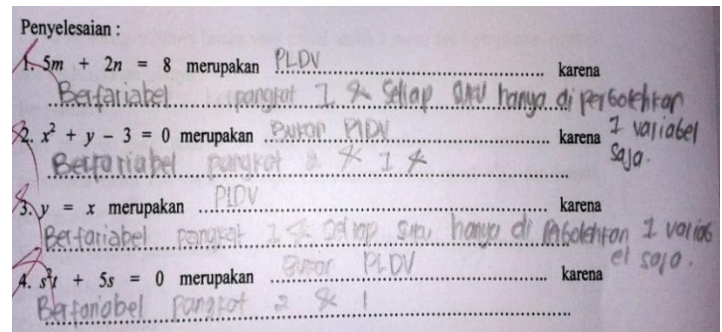 Penyelesaian :
1. 5m + 2n = 8 merupakan PLDV karena
Berfariabel pangkat 1 & Setiap suku hanya di perbolehkan 1 variabel saja.
2. x² + y - 3 = 0 merupakan Bukan PLDV karena
Berfariabel pangkat 2 & 1
3. y = x merupakan PLDV karena
Berfariabel pangkat 1 & Setiap suku hanya di perbolehkan 1 variabel saja.
4. s²t + 5s = 0 merupakan Bukan PLDV karena
Berfariabel pangkat 2 & 1